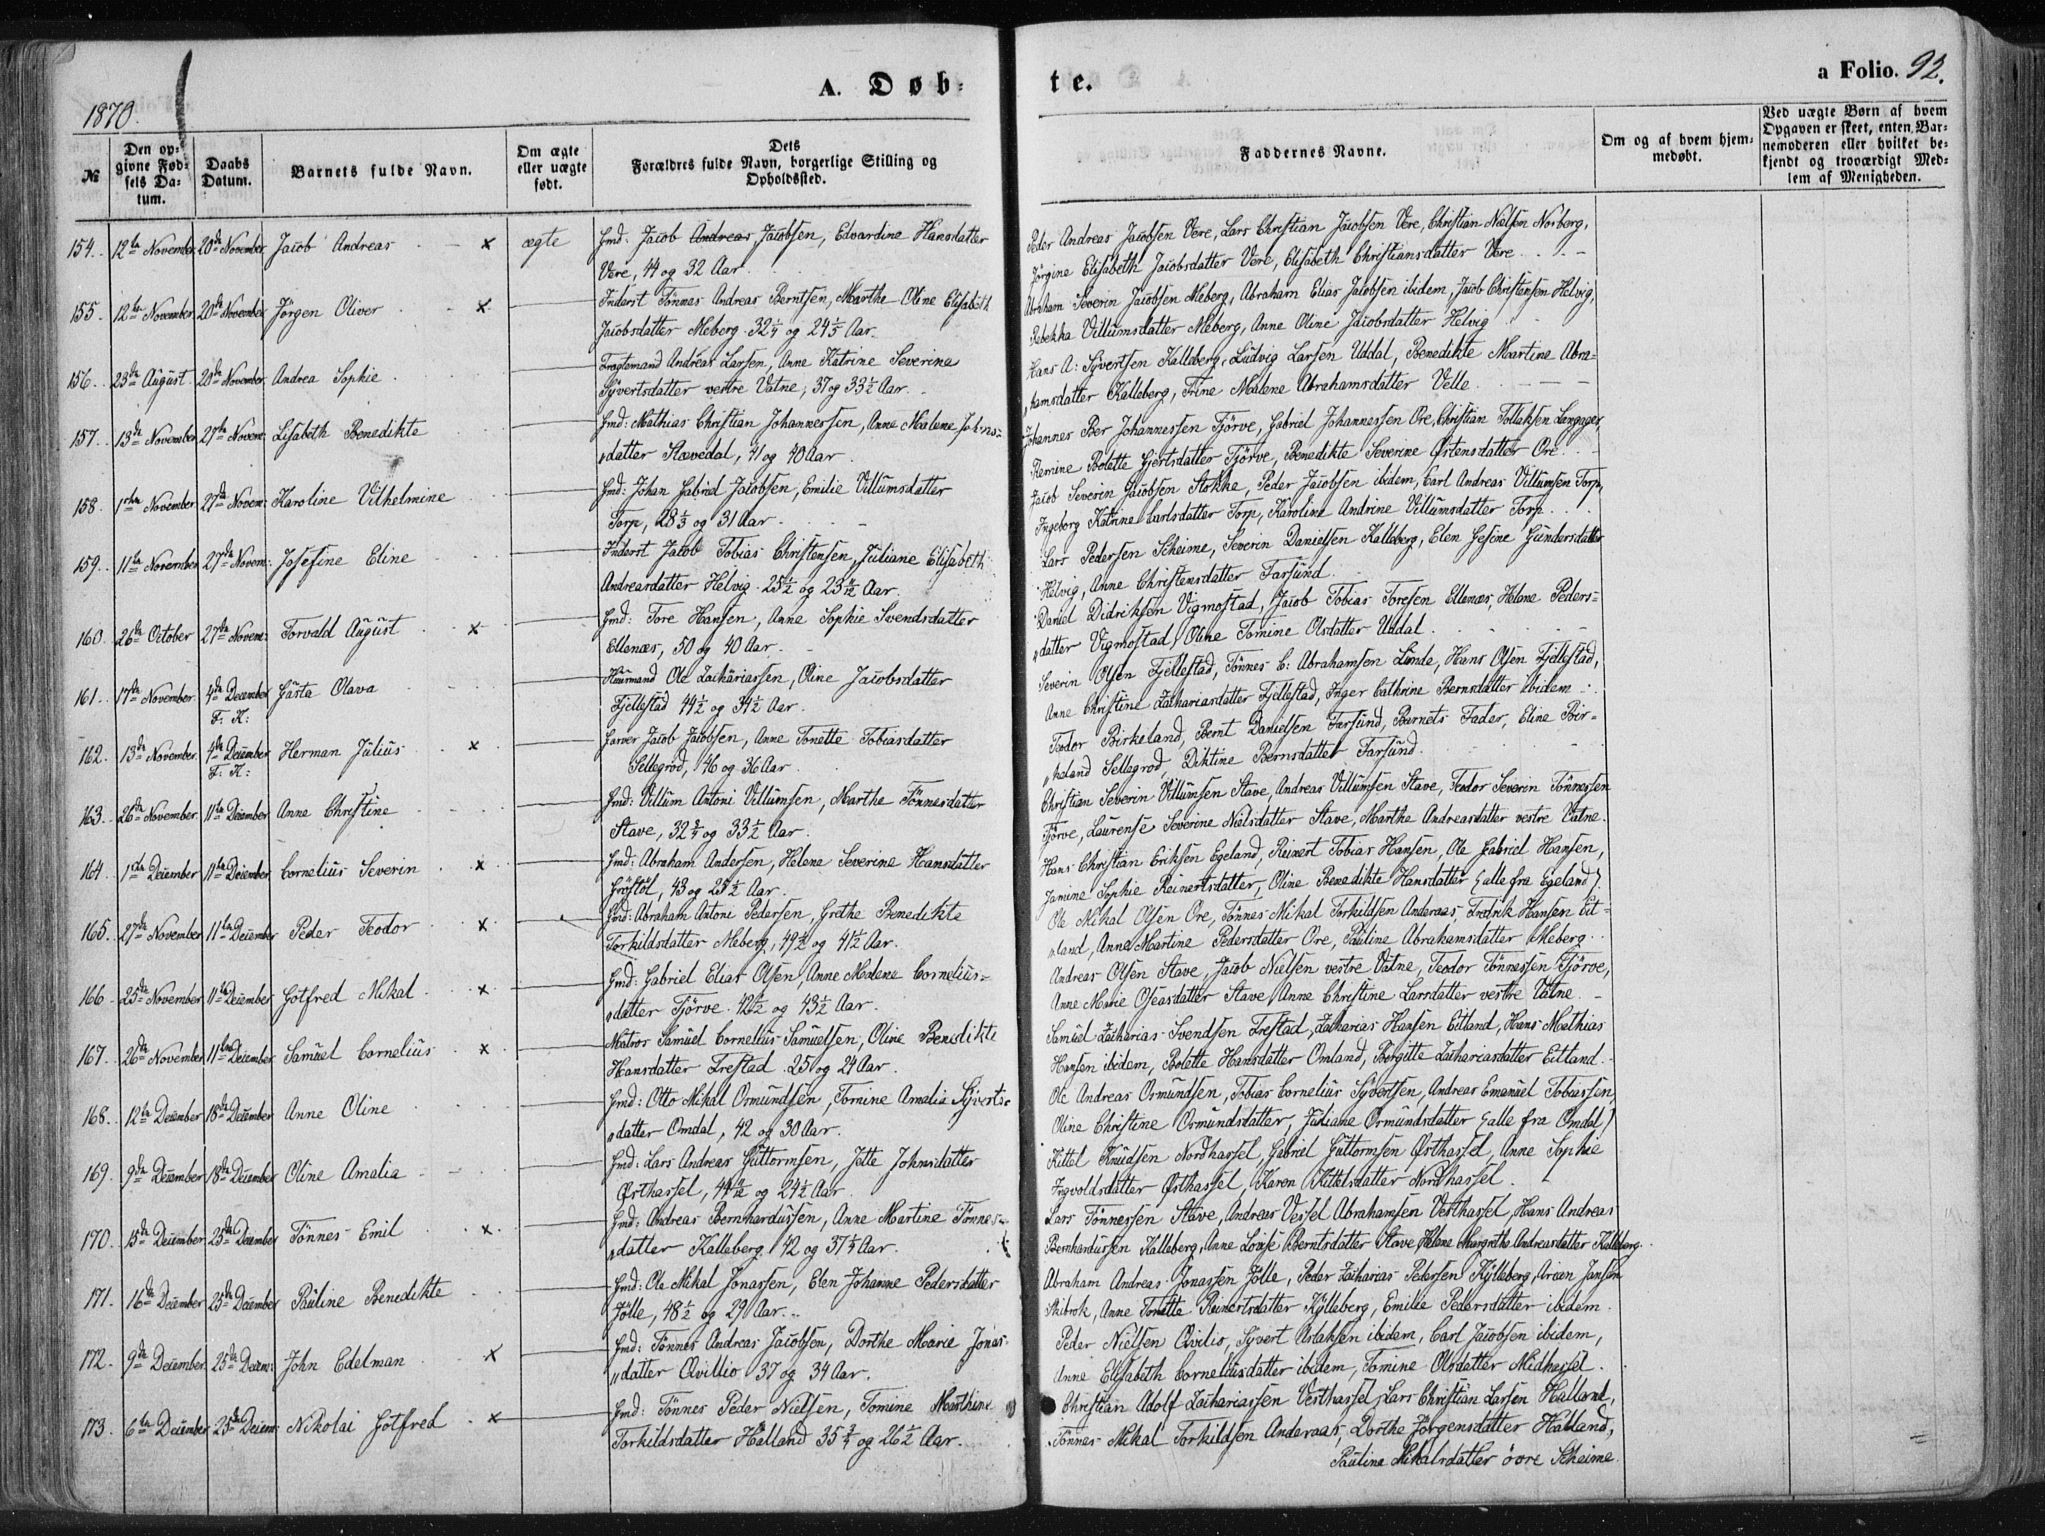 1870.
A. Døb-
te.
a Folio. 92.
№
Den op-
givne Fød-
sels Da-
tum.
Daabs
Datum.
Barnets fulde Navn.
Om ægte
eller uægte
født.
Dets
Forældres fulde Navn, borgerlige Stilling og
Opholdssted.
Faddernes Navne.
Om og af hvem hjem-
medøbt.
Ved uægte Børn af hvem
Opgaven er skeet, enten Bar-
nemoderen eller hvilket be-
kjendt og troværdigt Med-
lem af Menigheden.
154. 12te November 20de November Jacob Andreas × ægte Gmd: Jacob Andreas Jacobsen, Edvardine Hansdatter
Vere, 44 og 32 Aar.
Peder Andreas Jacobsen Vere, Lars Christian Jacobsen Vere, Christian Nielsen Norberg,
Jörgine Elisabeth Jacobsdatter Vere, Elisabeth Christiansdatter Vere
155. 12te November 20de November Jörgen Oliver × Inderst Tönnes Andreas Berntsen, Marthe Oline Elisabeth
Jacobsdatter Meberg 32 1/4 og 24 1/5 Aar.
Abraham Severin Jacobsen Meberg, Abraham Elias Jacobsen ibidem, Jacob Christensen Helvig,
Rebekka Villumsdatter Meberg, Anne Oline Jacobsdatter Helvig
156. 23de August 20de November Andrea Sophie Fragtemand Andreas Larsen, Anne Katrine Severine
Syvertsdatter vestre Vatne, 37 og 33 1/2 Aar.
Hans A: Syvertsen Kalleberg, Ludvig Larsen Uddal, Benedikte Martine Abra-
„hamsdatter Kalleberg, Trine Malene Abrahamsdatter Velle
157. 13de November 27de Novem: Lisabeth Benedikte Gmd: Mathias Christian Johannessen, Anne Malene Johns-
„datter Stavedal, 41 og 40 Aar.
Johannes Ber Johannessen Tjörve, Gabriel Johannessen Ore, Christian Tollaksen Langager,
Remine Bolette Gjertsdatter Tjörve, Benedikte Severine Østensdatter Ore
158. 1ste November 27de Novem: Karoline Vilhelmine Gmd: Johan Gabriel Jacobsen, Emilie Villumsdatter
Torp, 28 1/3 og 31 Aar.
Jacob Severin Jacobsen Stokke, Peder Jacobsen ibidem, Carl Andreas Villumsen Torp,
Ingeborg Katrine Carlsdatter Torp, Karoline Andrine Villumsdatter Torp
159. 11te November 27de Novem: Josefine Eline Inderst Jacob Tobias Christensen, Juliane Elisabeth
Andreasdatter Helvig 25 1/2 og 23 Aar.
Lars Pedersen Scheime, Severin Danielsen Kalleberg, Elen Gesine Gundersdatter
Helvig, Anne Christensdatter Farsund
160. 26de October 27de Novem: Torvald August × Gmd: Tore Hansen, Anne Sophie Svendsdatter
Ellenæs, 50 og 40 Aar.
Daniel Didriksen Vigmostad, Jacob Tobias Toresen Ellenæs, Helene Peders-
„datter Vigmostad, Oline Tomine Olsdatter Uddal
161. 17de November 4de December F: K: Gusta Olava Huusmand Ole Zachariassen, Oline Jacobsdatter
Fjellestad 44 1/2 og 34 1/2 Aar.
Severin Olsen Fjellestad, Tönnes C: Abrahamsen Lunde, Hans Olsen Fjellestad,
Anne Christine Zachariasdatter Fjellestad, Inger Cathrine Bernsdatter ibidem
162. 13de November 4de December F: K: Herman Julius × Garver Jacob Jacobsen, Anne Tonette Tobiasdatter
Sellegrod, 46 og 36 Aar.
Teodor Birkeland, Bernt Danielsen Farsund, Barnets Fader, Eline Bir-
„keland Sellegrod, Diktine Bernsdatter Farsund
163. 26de November 11te December Anne Christine Gmd: Villum Antoni Villumsen, Marthe Tönnesdatter
Stave, 32 3/4 og 33 1/2 Aar.
Christian Severin Villumsen Stave, Andreas Villumsen Stave, Teodor Severin Tönnessen
Tjörve, Laurense Severine Nielsdatter Stave, Marthe Andreasdatter vestre Vatne.
164. 1ste December 11te December Cornelius Severin × Gmd: Abraham Andersen, Helene Severine Hansdatter
Fröstöl, 43 og 23 1/2 Aar.
Hans Christian Eriksen Egeland, Reinert Tobias Hansen, Ole Gabriel Hansen,
Jamine Sophie Reinertsdatter, Oline Benedikte Hansdatter (alle fra Egeland).
165. 27de November 11te December Peder Teodor × Gmd: Abraham Antoni Pedersen, Grethe Benedikte
Torkildsdatter Meberg, 49 1/2 og 41 1/2 Aar.
Ole Mikal Olsen Ore, Tönnes Mikal Torkildsen Anderaas, Fredrik Hansen Eit-
„land, Anne Martine Pedersdatter Ore, Pauline Abrahamsdatter Meberg
166. 25de November 11te December Gotfred Mikal × Gmd: Gabriel Elias Olsen, Anne Malene Cornelius-
„datter Tjörve. 42 1/2 og 43 1/2 Aar.
Andreas Olsen Stave, Jacob Nielsen vestre Vatne, Teodor Tönnessen Tjörve,
Anne Marie Oseasdatter Stave, Anne Christine Larsdatter vestre Vatne
167. 26de November 11te December Samuel Cornelius × Matros Samuel Cornelius Samuelsen, Oline Benedikte
Hansdatter Frestad 25 og 24 Aar.
Samuel Zacharias Svendsen Frestad, Zacharias Hansen Eitland, Hans Mathias
Hansen ibidem, Bolette Hansdatter Omland, Bergitte Zachariasdatter Eitland
168. 12te December 18de December Anne Oline Gmd: Otto Mikal Osmundsen, Tomine Amalia Syverts-
„datter Omdal, 42 og 30 Aar.
Ole Andreas Osmundsen, Tobias Cornelius Syvertsen, Andreas Emanuel Tobiassen,
Oline Christine Osmundsdatter, Juliane Osmundsdatter (alle fra Omdal)
169. 9de December 18de December Oline Amalia Gmd: Lars Andreas Guttormsen, Jette Johnsdatter
Østhassel, 44 og 24 1/2 Aar.
Kittel Knudsen Nordhassel, Gabriel Guttormsen Østhassel, Anne Sophie
Ingvoldsdatter Østhassel, Karen Kittelsdatter Nordhassel.
170. 15de December 25de December Tönnes Emil × Gmd: Andreas Bernhardussen, Anne Martine Tönnes-
„datter Kalleberg 42 og 37 1/4 Aar.
Lars Tönnessen Stave, Andreas Vessel Abrahamsen Vesthassel, Hans Andreas
Bernhardussen Kalleberg, Anne Lovise Berntsdatter Stave, Helene Margrethe Andreasdatter Kalleberg
171. 16de December 25de December Pauline Benedikte Gmd: Ole Mikal Jonassen, Elen Johanne Pedersdatter
Jölle, 48 1/2 og 29 Aar.
Abraham Andreas Jonassen Jölle, Peder Zacharias Pedersen Kjelleberg, Jansen
Skibrok, Anne Tonette Reinertsdatter Kjelleberg, Emilie Pedersdatter ibidem.
172. 9de December 25de Decem: John Edelman × Gmd: Tönnes Andreas Jacobsen, Dorthe Marie Jonas-
„datter Qvillio 37 og 34 Aar.
Peder Nielsen Qvilio, Syvert Aslaksen ibidem, Carl Jacobsen ibidem,
Anne Elisabeth Corneliusdatter ibidem, Tomine Olsdatter Midhassel.
173. 6te December 25de Decem: Nikolai Gotfred × Gmd: Tönnes Peder Nielsen, Tomine Marthine
Torkildsdatter Halland 35 3/4 og 26 1/2 Aar.
Christian Adolf Zachariassen Vesthassel, Lars Christian Larsen Halland,
Tönnes Mikal Torkildsen Anderaas, Dorthe Jörgensdatter Halland,
Pauline Mikalsdatter övre Scheime